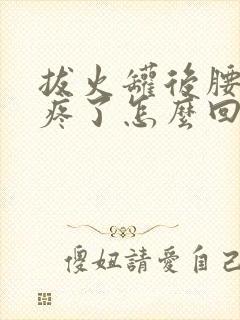 拔火罐後腰
疼了怎麼回
傻妞請愛自己